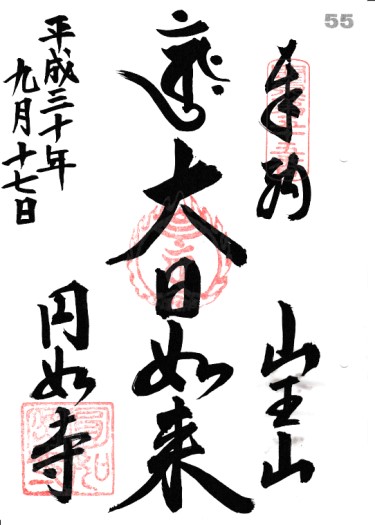 55
奉納
山王山
大日如来
平成三十年
九月十七日
円如寺